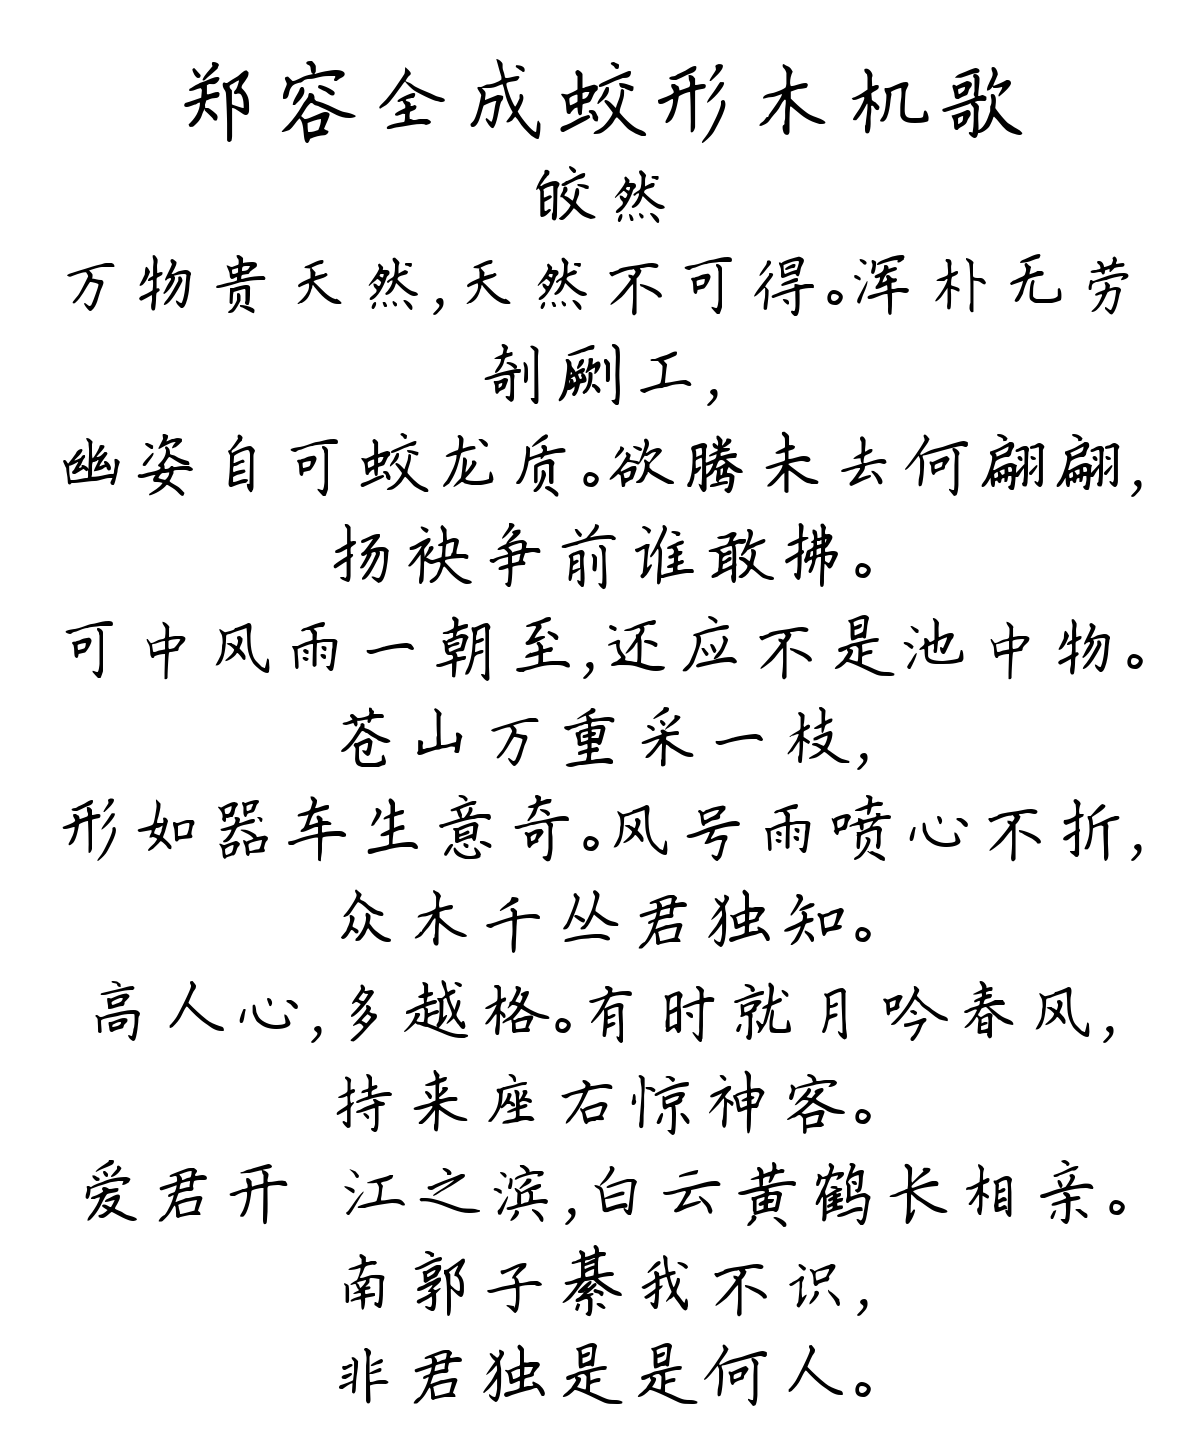 郑容全成蛟形木机歌
皎然
万物贵天然,天然不可得。浑朴无劳
剞劂工,
幽姿自可蛟龙质。欲腾未去何翩翩,
扬袂争前谁敢拂。
可中风雨一朝至,还应不是池中物。
苍山万重采一枝,
形如器车生意奇。风号雨喷心不折,
众木千丛君独知。
高人心,多越格。有时就月吟春风,
持来座右惊神客。
爱君开 江之滨,白云黄鹤长相亲。
南郭子綦我不识,
非君独是是何人。